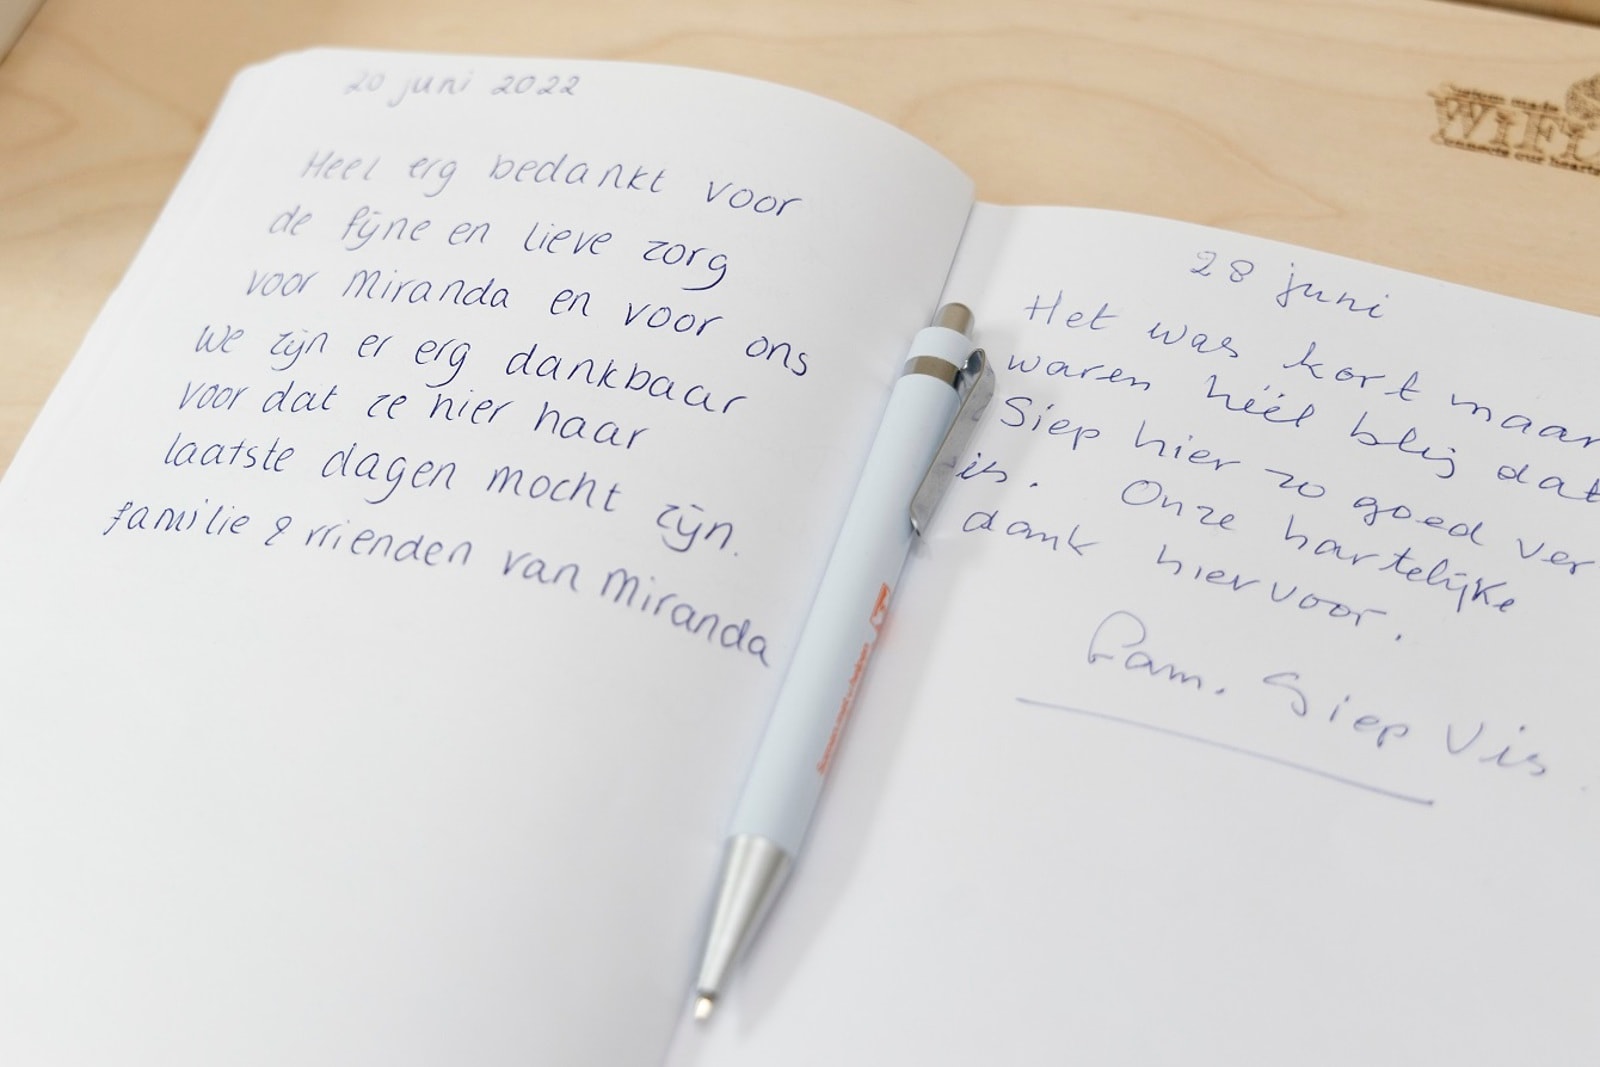 20 juni 2022
Heel erg bedankt voor
de fijne en lieve zorg
voor Miranda en voor ons
We zijn er erg dankbaar
voor dat ze hier haar
laatste dagen mocht zijn.
familie & vrienden van Miranda
28 juni
Het was kort maar
waren héél blij dat
Siep hier zo goed ver
is. Onze hartelijke
dank hiervoor.
Fam. Siep Vis
WiFi